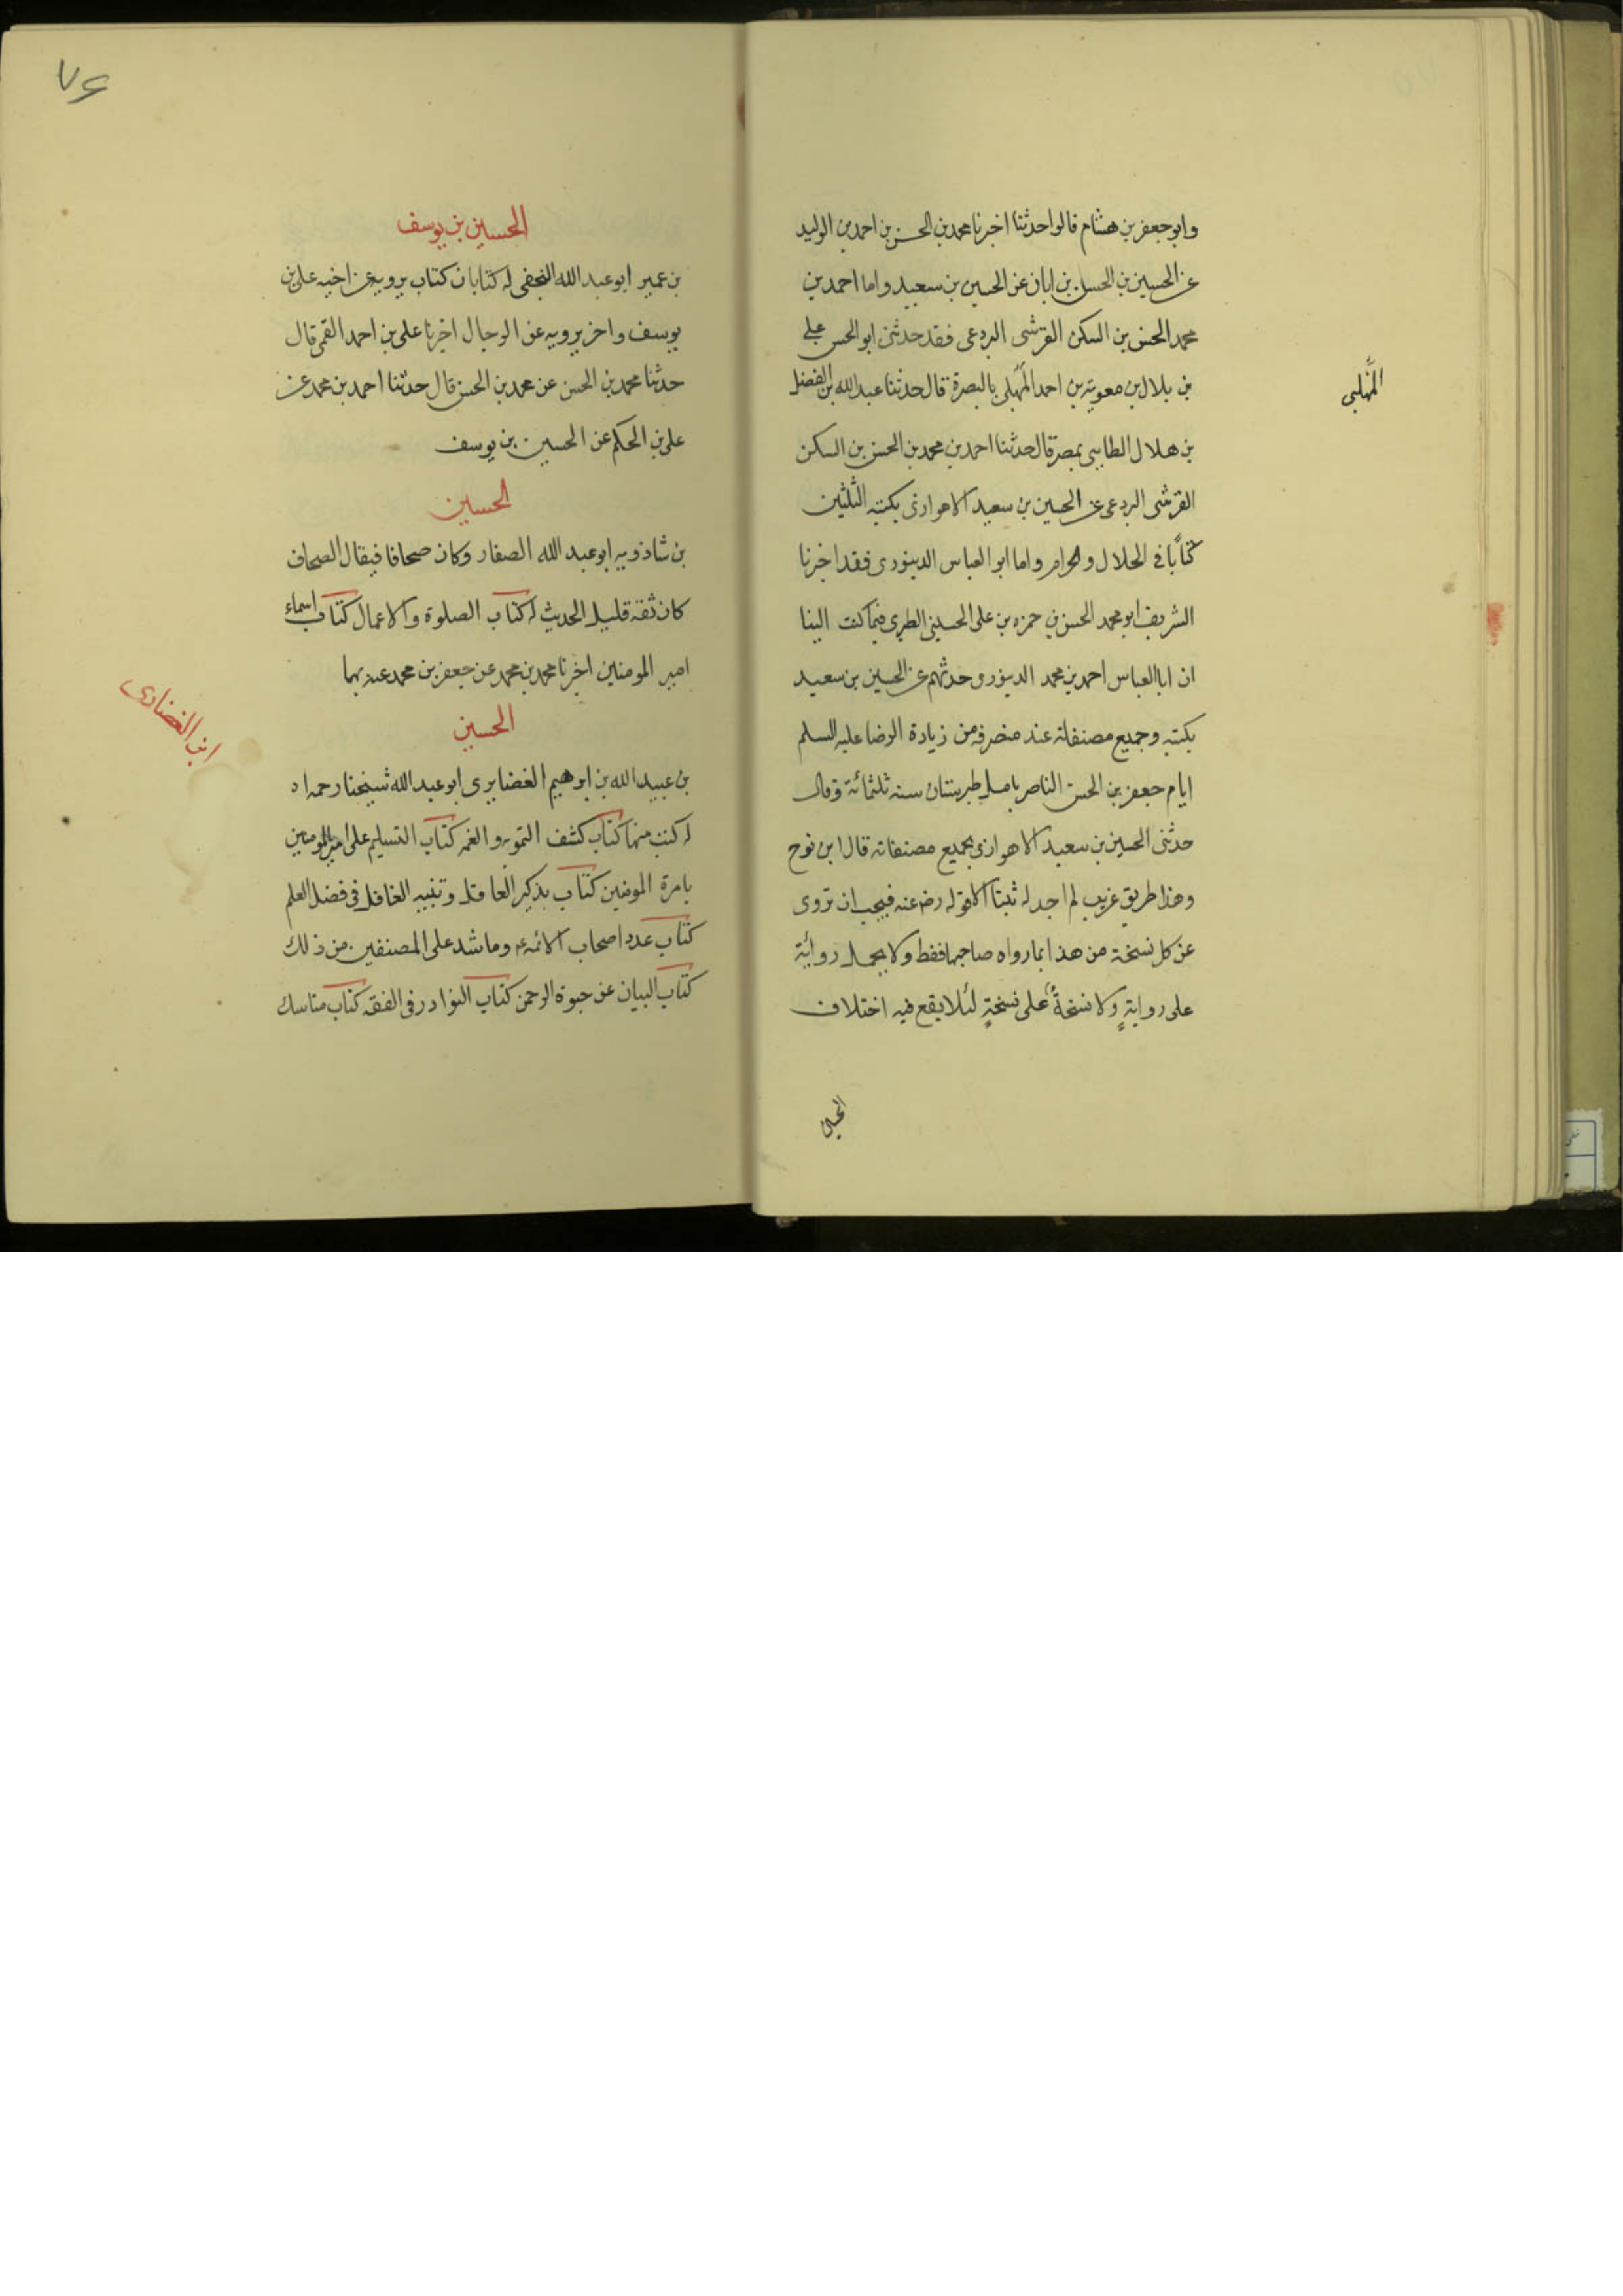 وابو جعفر بن هشام قالوا حدثنا اخبرنا محمد بن الحسن بن احمد بن الوليد
عن الحسين بن الحسن بن ابان عن الحسين بن سعيد واما احمد بن
محمد الحسن بن السكن القرشى البردعى فقد حدثنى ابو الحسن على
بن بلال بن معوية بن احمد المهلبى بالبصرة قال حدثنا عبد الله بن الفضل
المهلبى
بن هلال الطايى بمصر قال حدثنا احمد بن محمد بن الحسن بن السكن
القرشى البردعى عن الحسين بن سعيد الاهوازى بكتبه الثلثين
كتابا فى الحلال والحرام واما ابو العباس الدينورى فقد اخبرنا
الشريف ابو محمد الحسن بن حمزه بن على الحسينى الطبرى فيما كتب الينا
ان ابا العباس احمد بن محمد الدينورى حدثهم عن الحسين بن سعيد
بكتبه وجميع مصنفاته عند منصرفه من زيارة الرضا عليه السلم
ايام جعفر بن الحسن الناصر بامل طبرستان سنه ثلثمائة وقال
حدثنى الحسين بن سعيد الاهوازى بجميع مصنفاته قال ابن نوح
وهذا طريق غريب لم اجد له ثبتا الا قوله رضى عنه فيجب ان تروى
عن كل نسخة من هذا بما رواه صاحبها فقط ولا يحمل رواية
على رواية ولا نسخة على نسخة لئلا يقع فيه اختلاف
٧٦
الحسين بن يوسف
بن عمير ابو عبد الله النجفى له كتابان كتاب يرويه عن اخيه على بن
يوسف واخر يرويه عن الرجال اخبرنا على بن احمد القمى قال
حدثنا محمد بن الحسن عن محمد بن الحسن قال حدثنا احمد بن محمد عن
على بن الحكم عن الحسين بن يوسف
الحسين
بن شاذويه ابو عبد الله الصفار وكان صحافا فيقال الصحاف
كان ثقة قليل الحديث له كتاب الصلوة والاعمال كتاب اسماء
امير المومنين اخبرنا محمد بن محمد عن جعفر بن محمد عنه بهما
الحسين
بن عبيد الله بن ابرهيم الغضايرى ابو عبد الله شيخنا رحمه
له كتب منها كتاب كشف التمويه والغمه كتاب التسليم على امير المومنين
بامرة المومنين كتاب تذكير العاقل وتنبيه الغافل فى فضل العلم
كتاب عدد اصحاب الائمه ع وما شذ على المصنفين من ذلك
كتاب البيان عن حبوة الرحمن كتاب النوادر فى الفقه كتاب مناسك